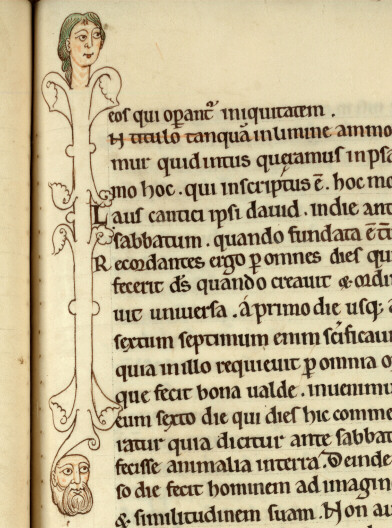 eos qui oꝑant᷑ iniquitatem .
In titulo tanquā in limine ammo
mur quid intus queramus in psa
mo hoc . qui inscriptus ē . hoc mo
Laus cantici ipsi dauid . in die ant
sabbatum . quando fundata ē
Recordantes ergo ꝑ omnes dies qui
fecerit d̄s quando creauit & ordi
uit uniuersa . á primo die usq;
sextum septimum enim scificaui
quia in illo requieuit ꝑ omnia o
que fecit bona ualde . inuenimu
eum sexto die qui dies hic comme
ratur quia dicitur ante sabbat
fecisse animalia in terra. Deinde
so die fecit hominem ad imagin
& similitudinem suam. Non an